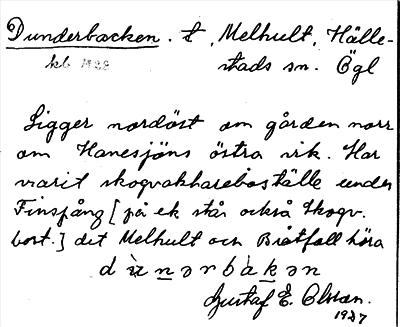 Dunderbacken. t, Melhult, Hälle-
kb 1922 stads sn. Ögl
Ligger nordöst om gården norr
om Hanesjöns östra vik. Har
varit skogvakhareboställe under
Finspång [på ek står också skogv.
bost.] det Melhult och Bråtfall höra
Gustaf E. Olsson.
1927